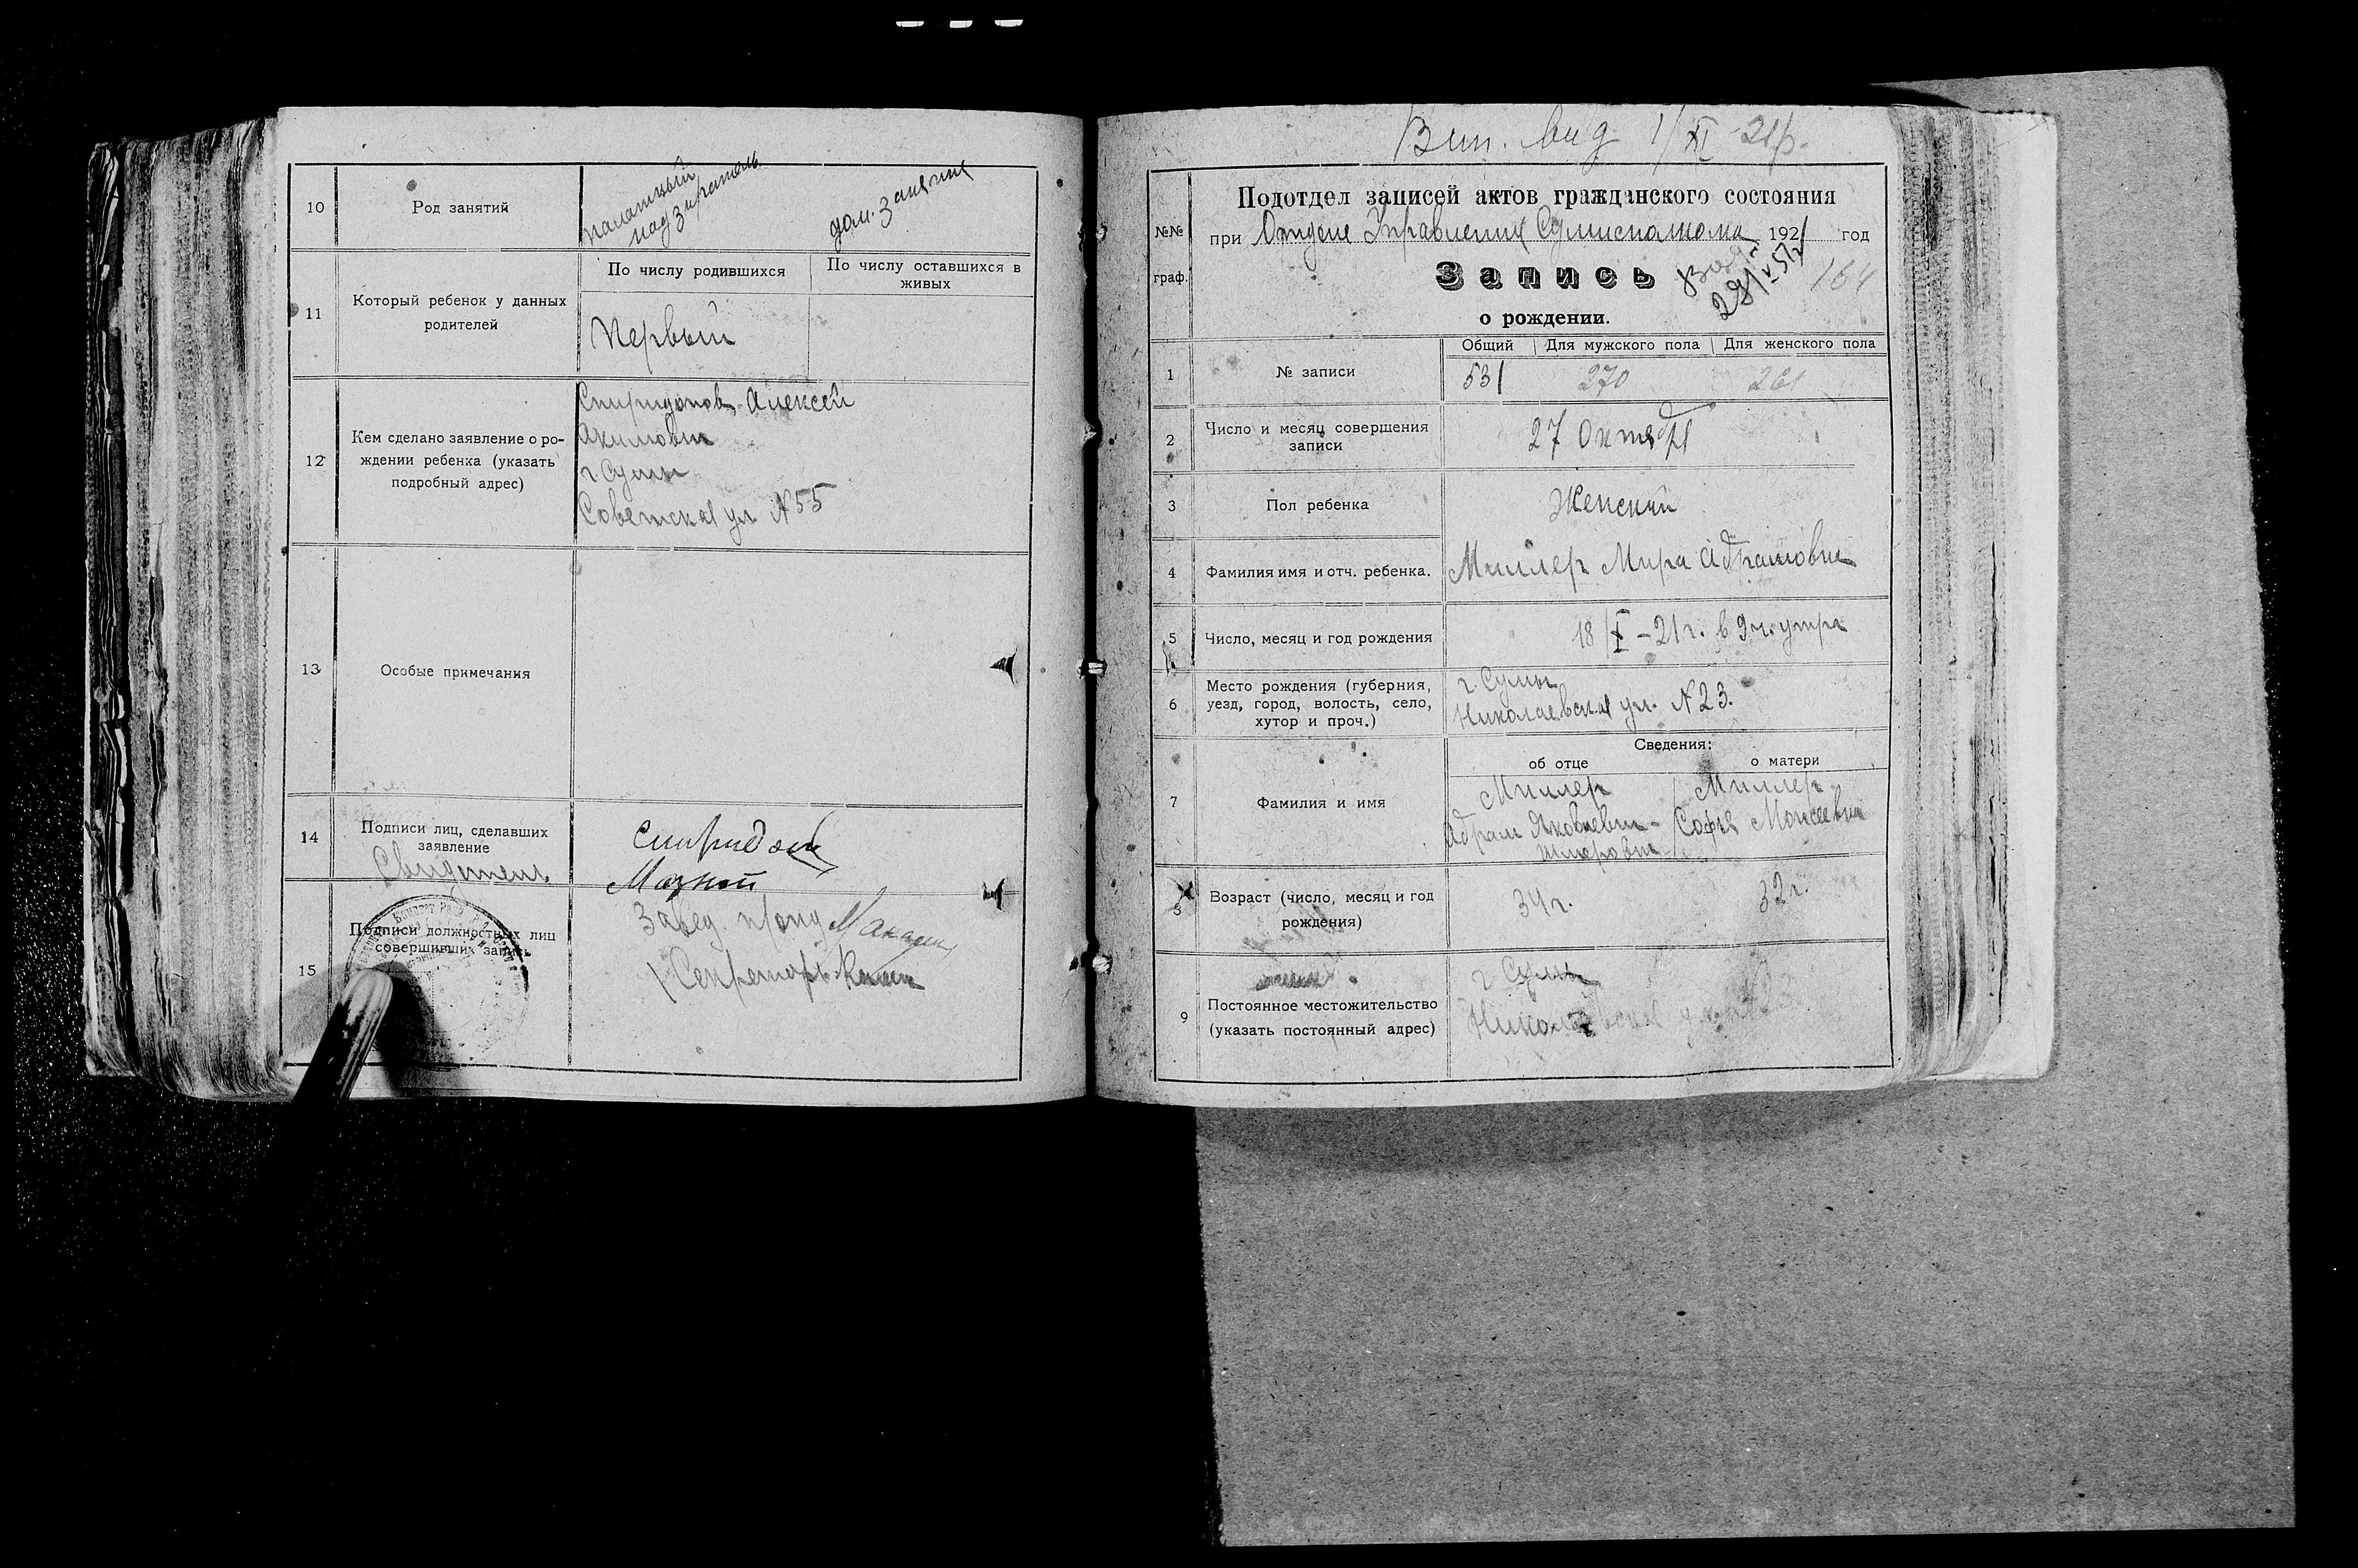 10
Род занятий
палатный
надзиратель
дом. занятия
11
Который ребенок у данных
родителей
По числу родившихся
По числу оставшихся в
живых
Первый
12
Кем сделано заявление о ро-
ждении ребенка (указать
подробный адрес)
Спиридонов Алексей
Акимович
г. Сумы
Советская ул. N 55
13
Особые примечания
14
Подписи лиц, сделавших
заявление
Свидетель
Спиридонов
Мазной
15
Подписи должностных лиц
совершивших запись
Завед. п/отд
Секретарь
Вип. вид 1/XI-21р.
№№
граф.
Подотдел записей актов гражданского состояния
при Отделе Управления Сумисполкома 1921 год
Запись
29/V 51г
164
о рождении.
Общий Для мужского пола Для женского пола
1
№ записи
531 270 261
2
Число и месяц совершения
записи
27 Октября
3
Пол ребенка
Женский
4
Фамилия имя и отч. ребенка.
Миллер Мира Абрамовна
5
Число, месяц и год рождения
18/X-21г. в 9 ч. утра
6
Место рождения (губерния,
уезд, город, волость, село,
хутор и проч.)
г. Сумы
Николаевская ул. N 23.
7
Фамилия и имя
Сведения:
об отце о матери
Миллер
Абрам Яковлевич-
Миллер
Софья Моисеевна
8
Возраст (число, месяц и год
рождения)
34 г. 32 г.
9
Постоянное местожительство
(указать постоянный адрес)
г Сумы
Николаевская ул. N 23.